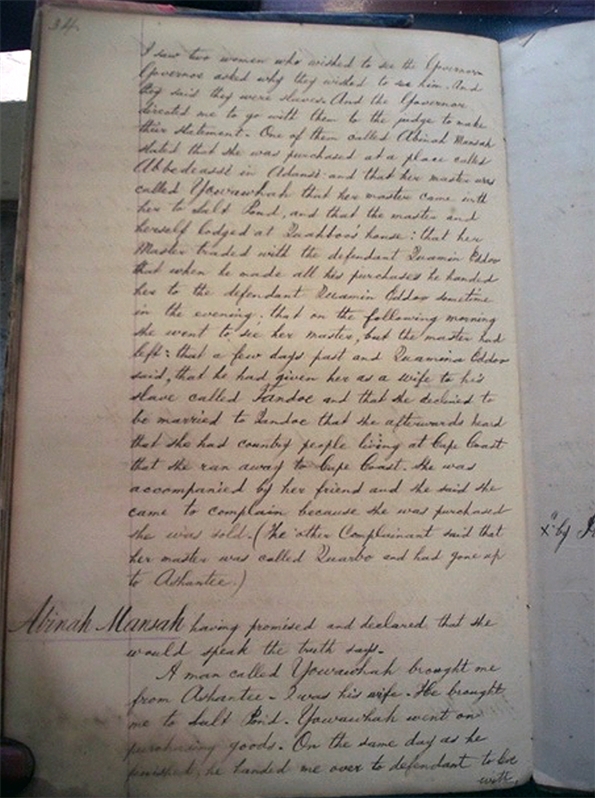 34
I saw two women who wished to see the Governor
Governor asked why they wished to see him. And
they said they were slaves. And the Governor
directed me to go with them to the judge to make
their statement. One of them called Abinah Mansah
stated that she was purchased at a place called
Abbedeasse in Adansi and that her master was
called Yowawhah that her master came with
her to Salt Pond, and that the master and
herself lodged at Quahboo's house: that her
Master traded with the defendant Quamin Eddoo
that when he made all his purchases he handed
her to the defendant Quamin Eddoo sometime
in the evening. that on the following morning
she went to see her master, but the master had
left: that a few days past and Quamina Eddoo
said, that he had given her as a wife to his
slave called Tandoe and that she declined to
be married to Tandoe that she afterwards heard
that she had country people living at Cape Coast
that she ran away to Cape Coast. She was
accompanied by her friend and she said she
came to complain because she was purchased
she was sold. (The other Complainant said that
her master was called Quarbo and had gone up
to Ashantee.)
Abinah Mansah having promised and declared that she
would speak the truth says.
A man called Yowawhah brought me
from Ashantee - I was his wife. He brought
me to Salt Pond. Yowawhah went on
purchasing goods. On the same day as he
finished, he handed me over to defendant to live
with
"x" by